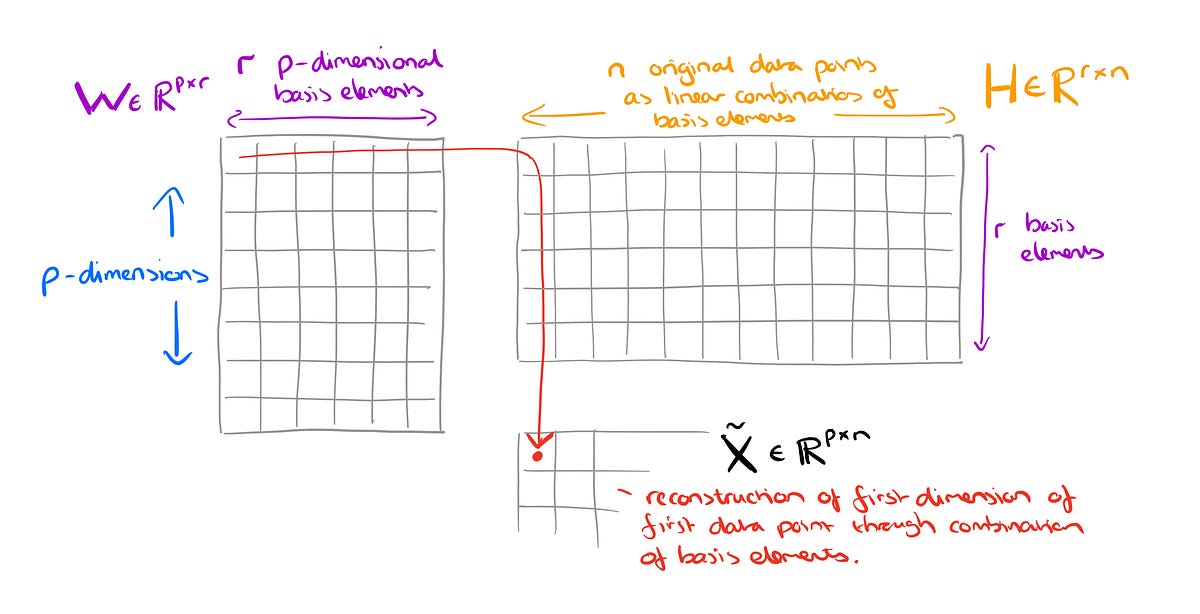 W ∈ ℝᵖˣʳ
r p-dimensional
basis elements
n original data points
as linear combinations of
basis elements
H ∈ ℝʳˣⁿ
p-dimensions
r basis
elements
X̃ ∈ ℝᵖˣⁿ
reconstruction of first dimension of
first data point through combination
of basis elements.